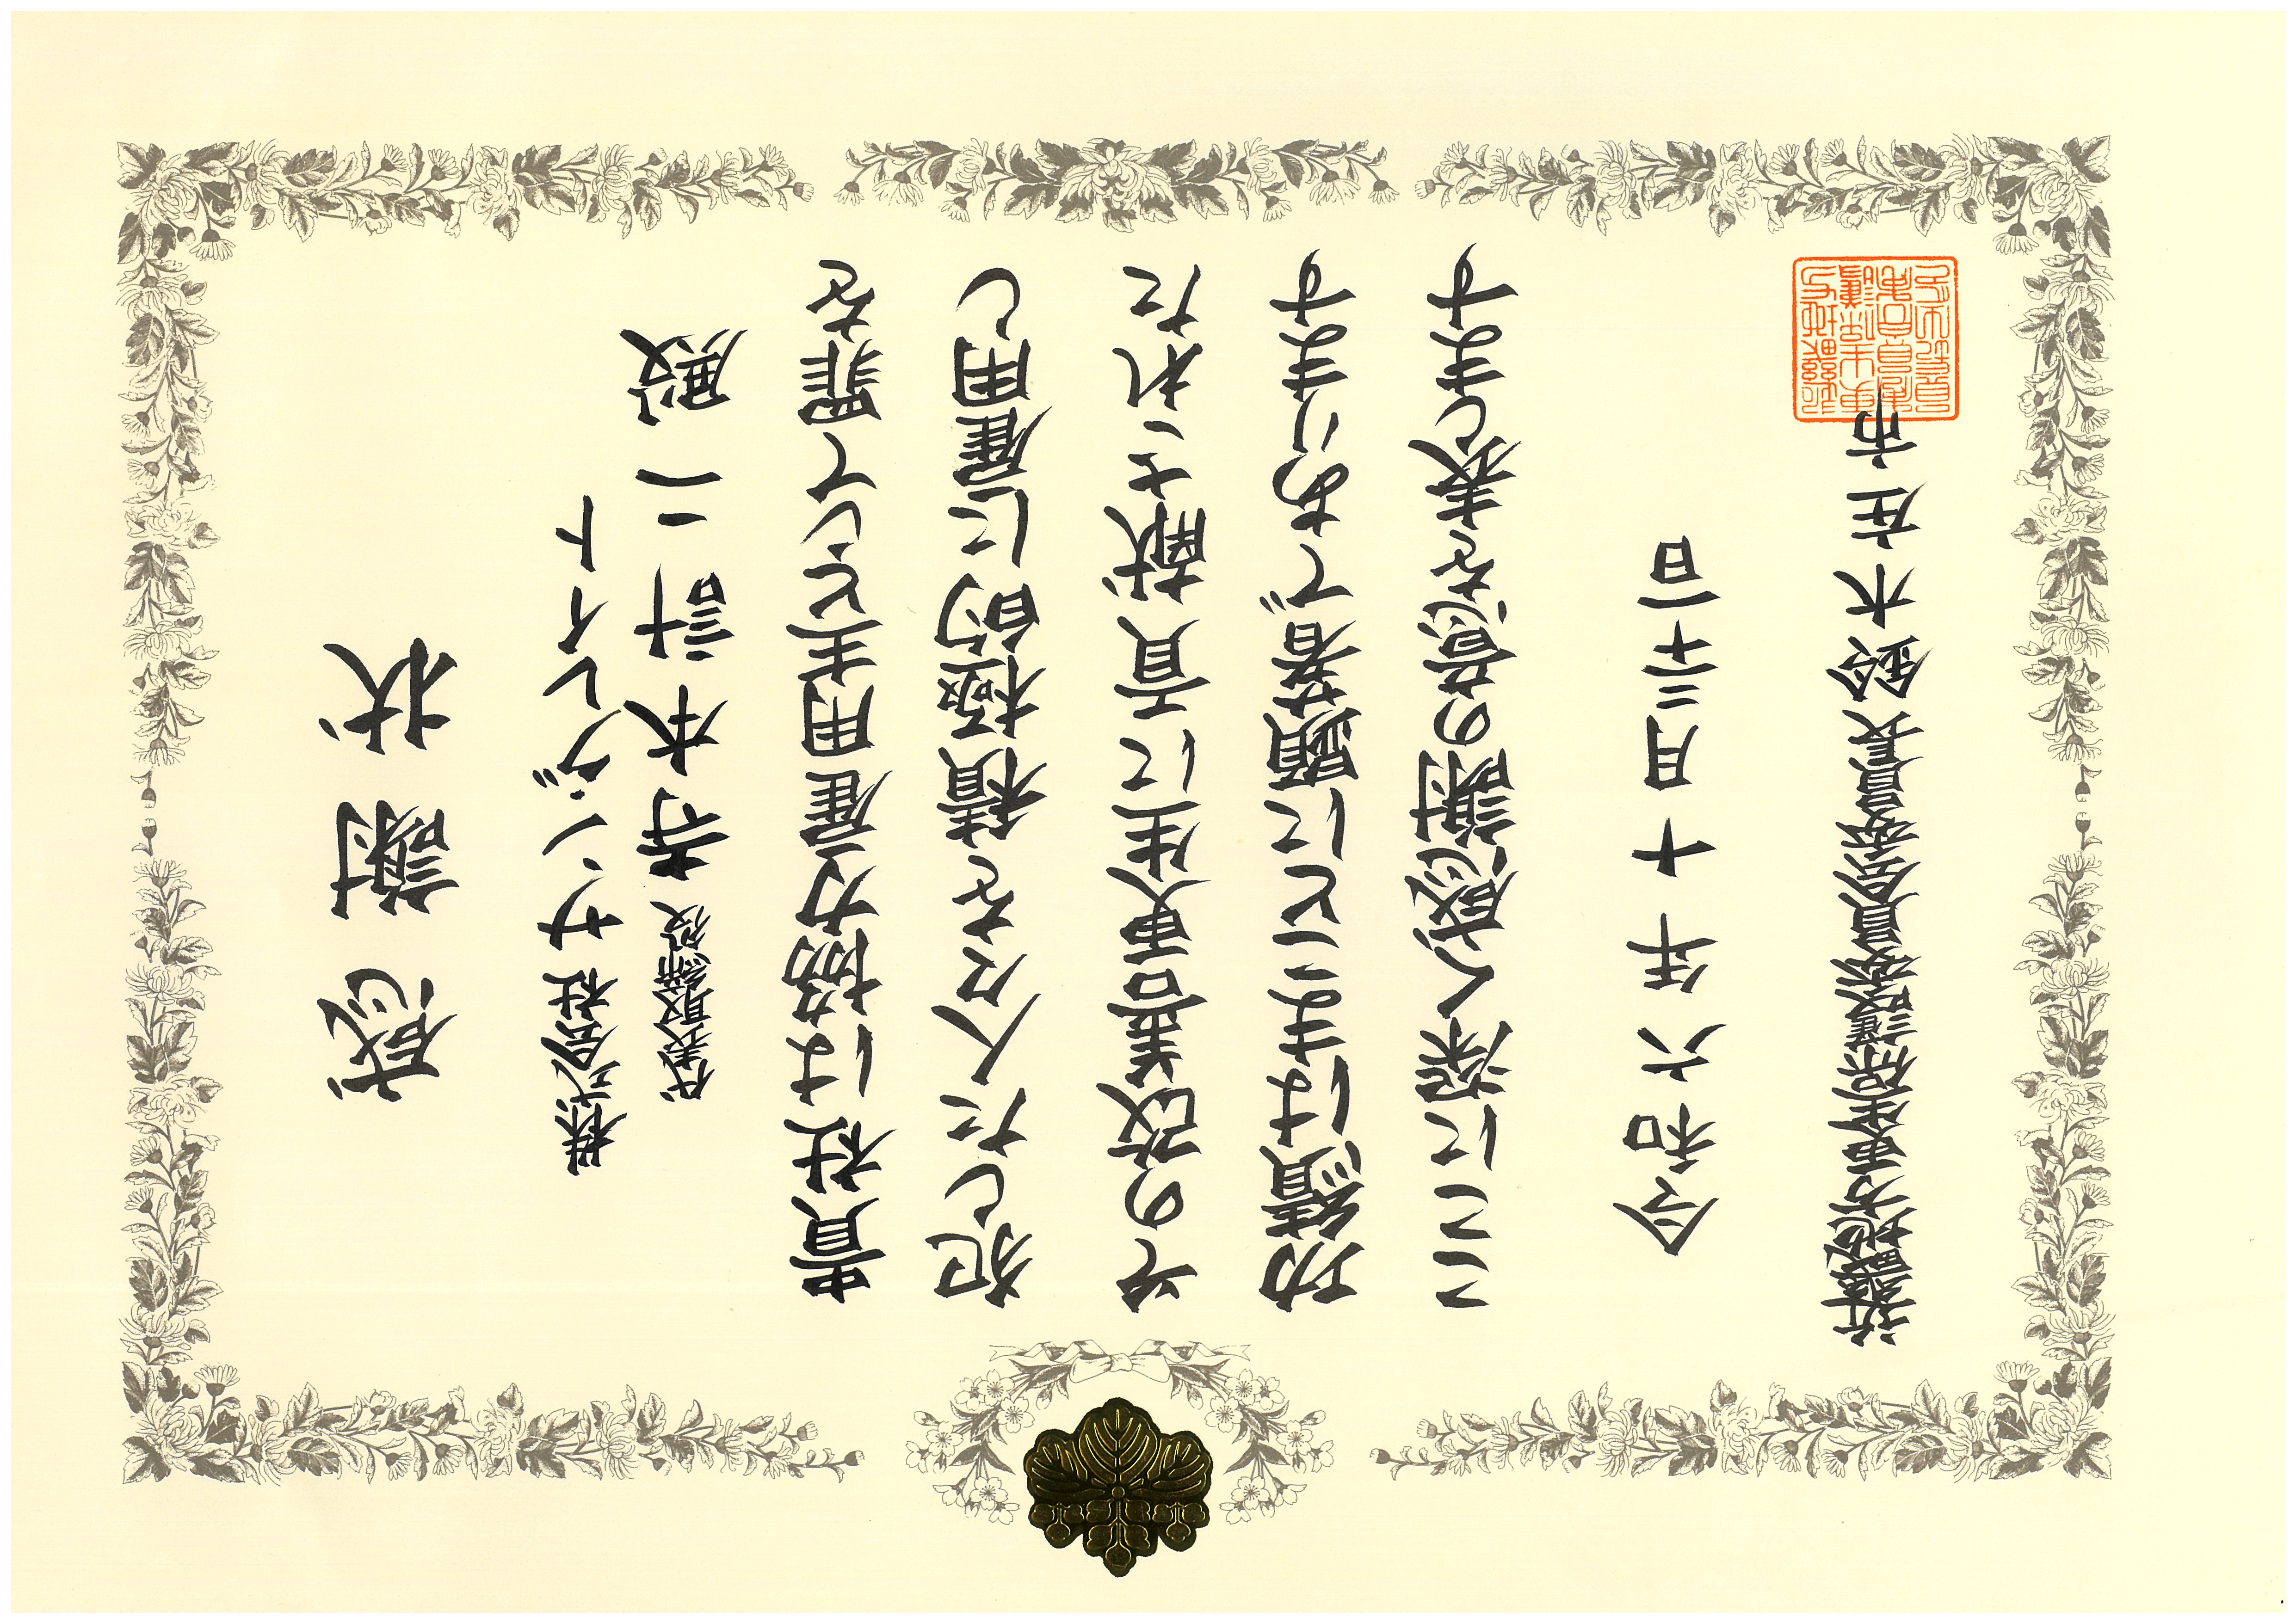 感謝状
株式会社サンブレイト
代表取締役 寺本計二 殿
貴社は協力雇用主として罪を
犯した人々を積極的に雇用し
その改善更生に貢献された
功績はまことに顕著であります
ここに深く感謝の意を表します
令和六年十月三十一日
近畿地方更生保護委員会委員長 鈴木庄市